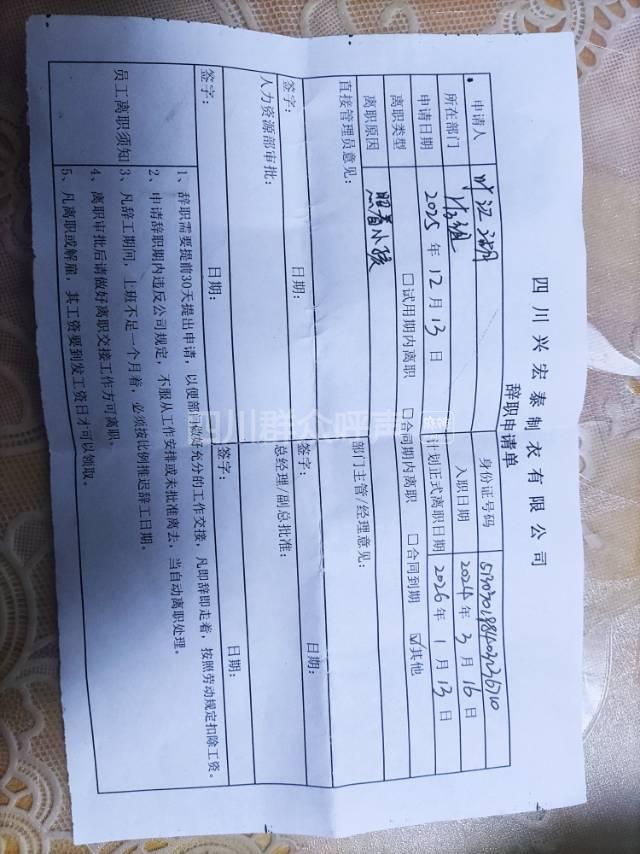 四川兴宏泰制衣有限公司
辞职申请单
申请人 叶江湖 身份证号码
所在部门 入职日期 2024年3月16日
申请日期 2025年12月13日 计划正式离职日期 2026年1月13日
离职类型 □试用期内离职 □合同期内离职 □合同到期 ☑其他
离职原因 照看小孩
直接管理员意见: 部门主管/经理意见:
签字: 日期: 签字: 日期:
人力资源部审批: 总经理/副总批准:
签字: 日期: 签字: 日期:
员工离职须知
1、辞职需要提前30天提出申请,以便部门做好充分的工作交接,凡即辞即走着,按照劳动规定扣除工资。
2、申请辞职期内违反公司规定,不服从工作安排或未批准离去,当自动离职处理。
3、凡辞工期间,上班不足一个月着,必须按比例推迟辞工日期。
4、离职审批后请做好离职交接工作方可离职。
5、凡离职或解雇,其工资要到发工资日才可以领取。
四川群众呼声